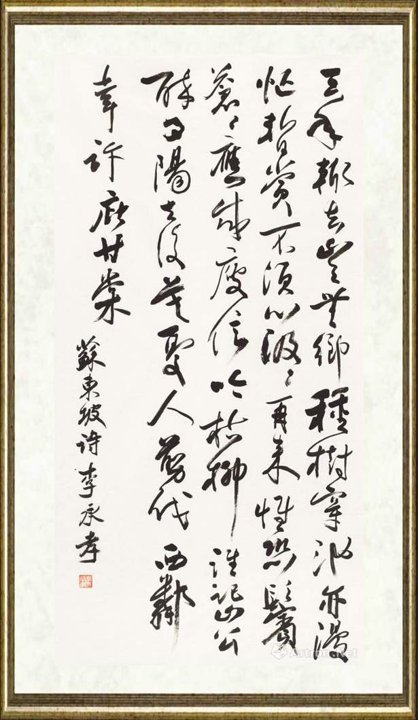 三年輒去豈無鄉種樹穿池亦漫
忙暫賞不須心汲〻再來惟恐鬢
蒼〻應成庾信吟枯柳誰記山公
醉夕陽去後莫憂人剪伐西鄰
幸許庇甘棠
蘇東坡詩李承孝